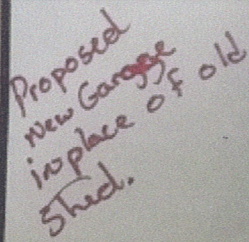 Proposed
New Garage
in place of old
Shed.